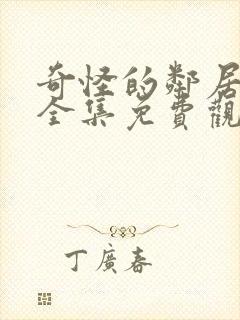 奇怪的鄰居
全集免費觀
丁廣春